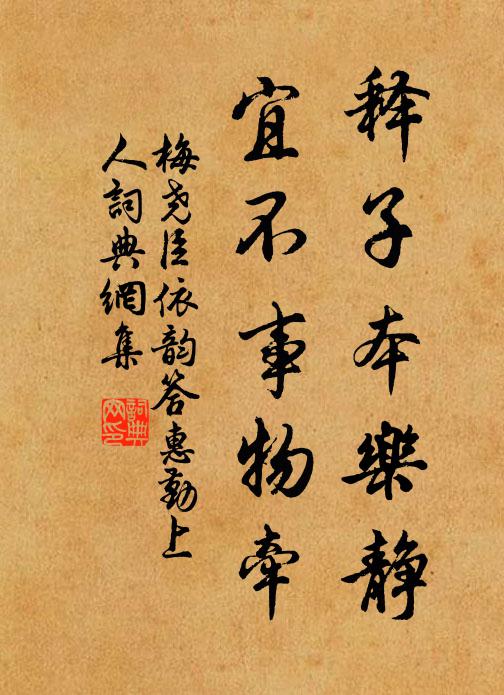 释子本樂静
宜不事物牽
梅尧臣依韵答惠勤上
人詞典網集
詞典
网印